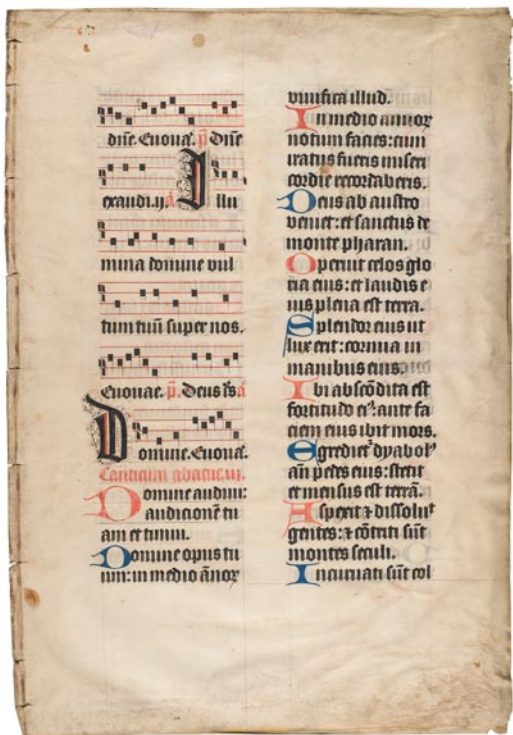 dñe. Euouae. p̄. Dñe
exaudi. ij. a Illu
mina domine vul
tum tuū super nos.
Euouae. p̄. Deus ds̄ a
Domine. Euouae.
Canticum abacuc. iij.
Domine audiui:
audicionē tu
am et timui.
Domine opus tu
um: in medio ānoꝝ
viuifica illud.
In medio annoꝝ
notum facies: cum
iratus fueris miseri
cordie recordaberis.
Deus ab austro
veniet: et sanctus de
monte pharan.
Operuit celos glo
ria eius: et laudis e
ius plena est terra.
Splendor eius ut
lux erit: cornua in
manibus eius.
Ibi abscōdita est
fortitudo eiꝰ: ante fa
ciem eius ibit mors.
Egredietᷣ dyabolꝰ
ān pedes eius: stetit
et mensus est terrā.
Aspexit ⁊ dissoluit
gentes: ⁊ cōtriti sūt
montes seculi.
Incuruati sūt col